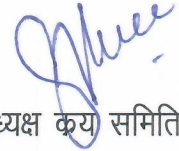 ध्यक्ष क्रय समिति